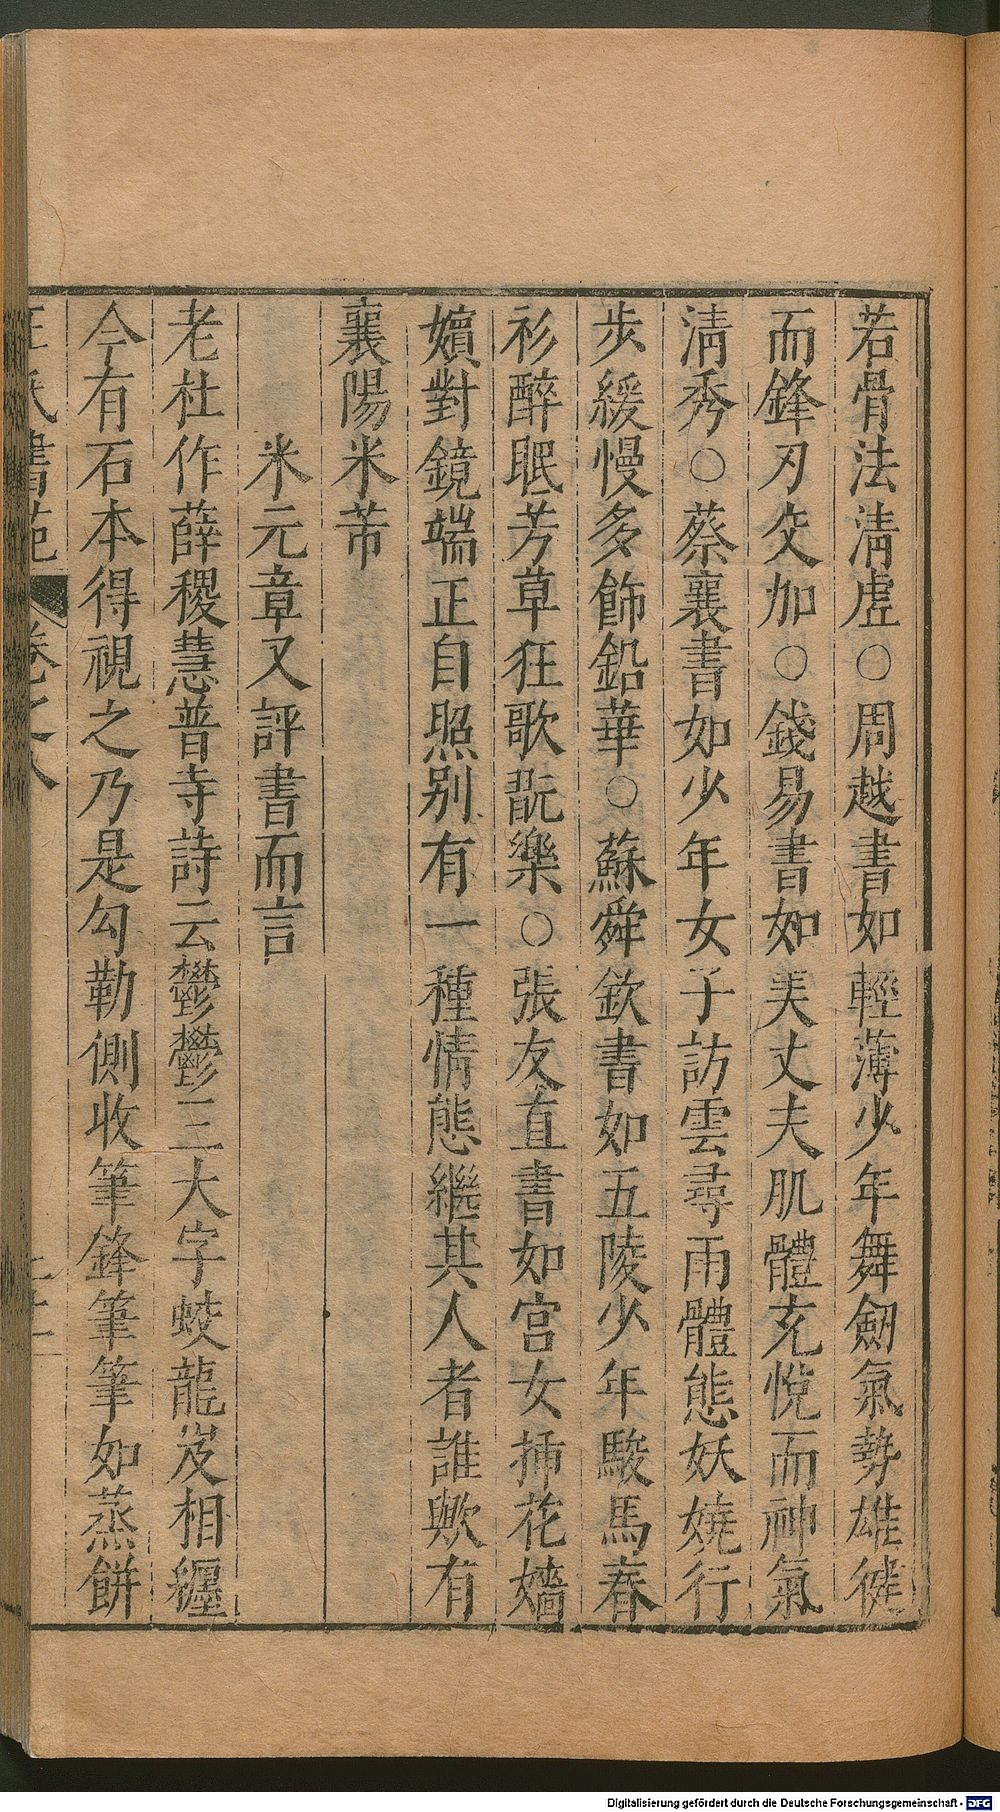 若骨法淸虛○周越書如輕薄少年舞劒氣勢雄徤
而鋒刃交加○錢易書如美丈夫肌體充悅而神氣
淸秀○蔡襄書如少年女子訪雲尋雨體態妖嬈行
步緩慢多飾鉛華○蘇舜欽書如五陵少年駿馬春
衫醉眠芳草狂歌翫樂○張友直書如宮女插花嬙
嬪對鏡端正自照别有一種情態繼其人者誰歟有
襄陽米芾
米元章又評書而言
老杜作薛稷慧普寺詩云鬱鬱三大字蛟龍岌相纒
今有石本得視之乃是勾勒側收筆鋒筆筆如蒸餅
王氏書苑 卷之八
Digitalisierung gefördert durch die Deutsche Forschungsgemeinschaft - DFG